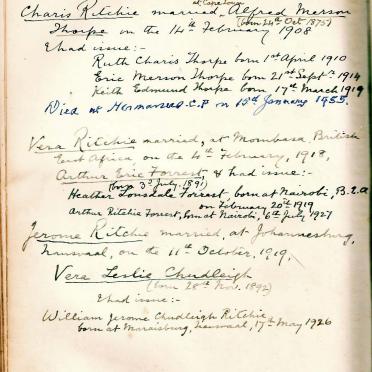 at Cape Town
Charis Ritchie married, Alfred Merson
(born 24th Oct. 1875)
Thorpe on the 14th February 1908
& had issue:-
Ruth Charis Thorpe born 1st April 1910
Eric Merson Thorpe born 21st Septr. 1914
Keith Edmund Thorpe born 17th March 1919
Died at Hermanus C.P. on 15th January 1955.
Vera Ritchie married, at Mombasa, British
East Africa, on the 4th February, 1918,
Arthur Eric Forrest, & had issue:-
(born 3rd July 1891)
Heather Lonsdale Forrest born at Nairobi, B.E.A
on February 20th 1919
Arthur Ritchie Forrest, born at Nairobi, 6th July 1927
Jerome Ritchie married, at Johannesburg,
Transvaal, on the 11th October, 1919,
Vera Leslie Chudleigh
(born 28th Nov. 1892)
& had issue:-
William Jerome Chudleigh Ritchie
born at Maraisburg, Transvaal, 17th May 1926